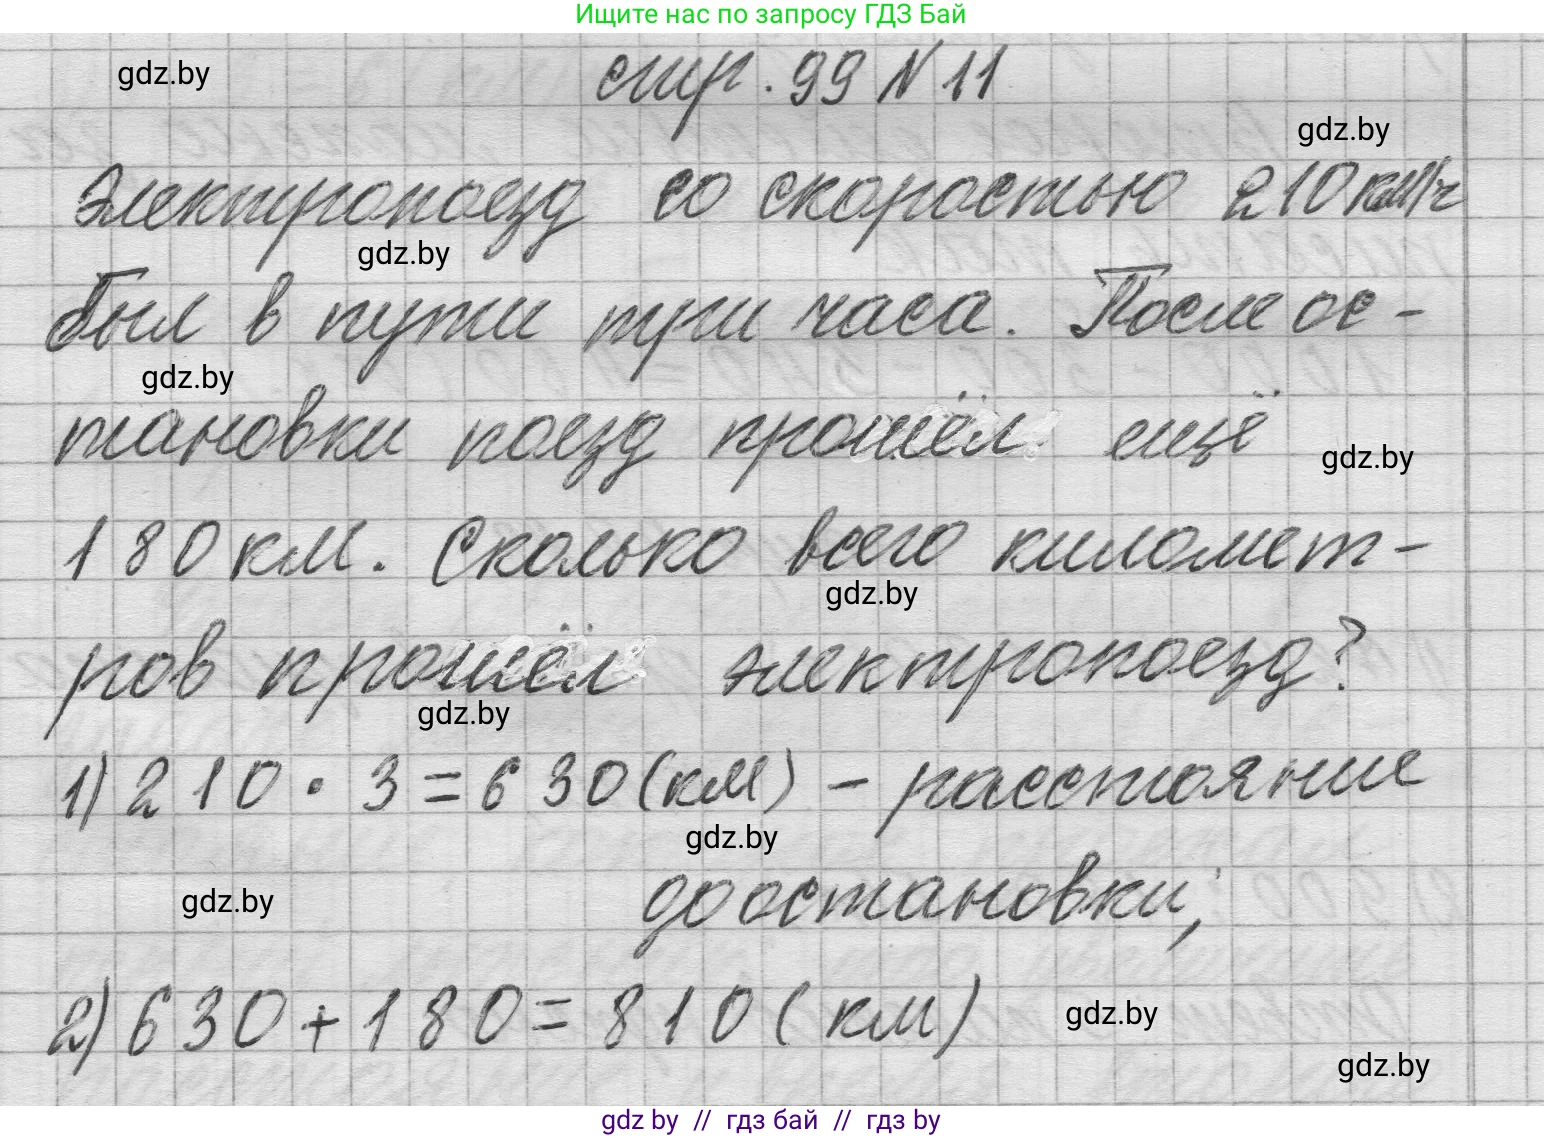 Ищите нас по запросу ГДЗ Бай
gdz.by
стр. 99 N 11
gdz.by
Электропоезд со скоростью 210 км/ч
gdz.by
был в пути три часа. После ос-
gdz.by
тановки поезд прошёл ещё
gdz.by
180 км. Сколько всего километ-
gdz.by
ров прошёл электропоезд?
gdz.by
1) 210 · 3 = 630 (км) – расстояние
gdz.by
до остановки;
gdz.by
2) 630 + 180 = 810 (км)
gdz.by
gdz.by
gdz by // гдз бай // гдз by